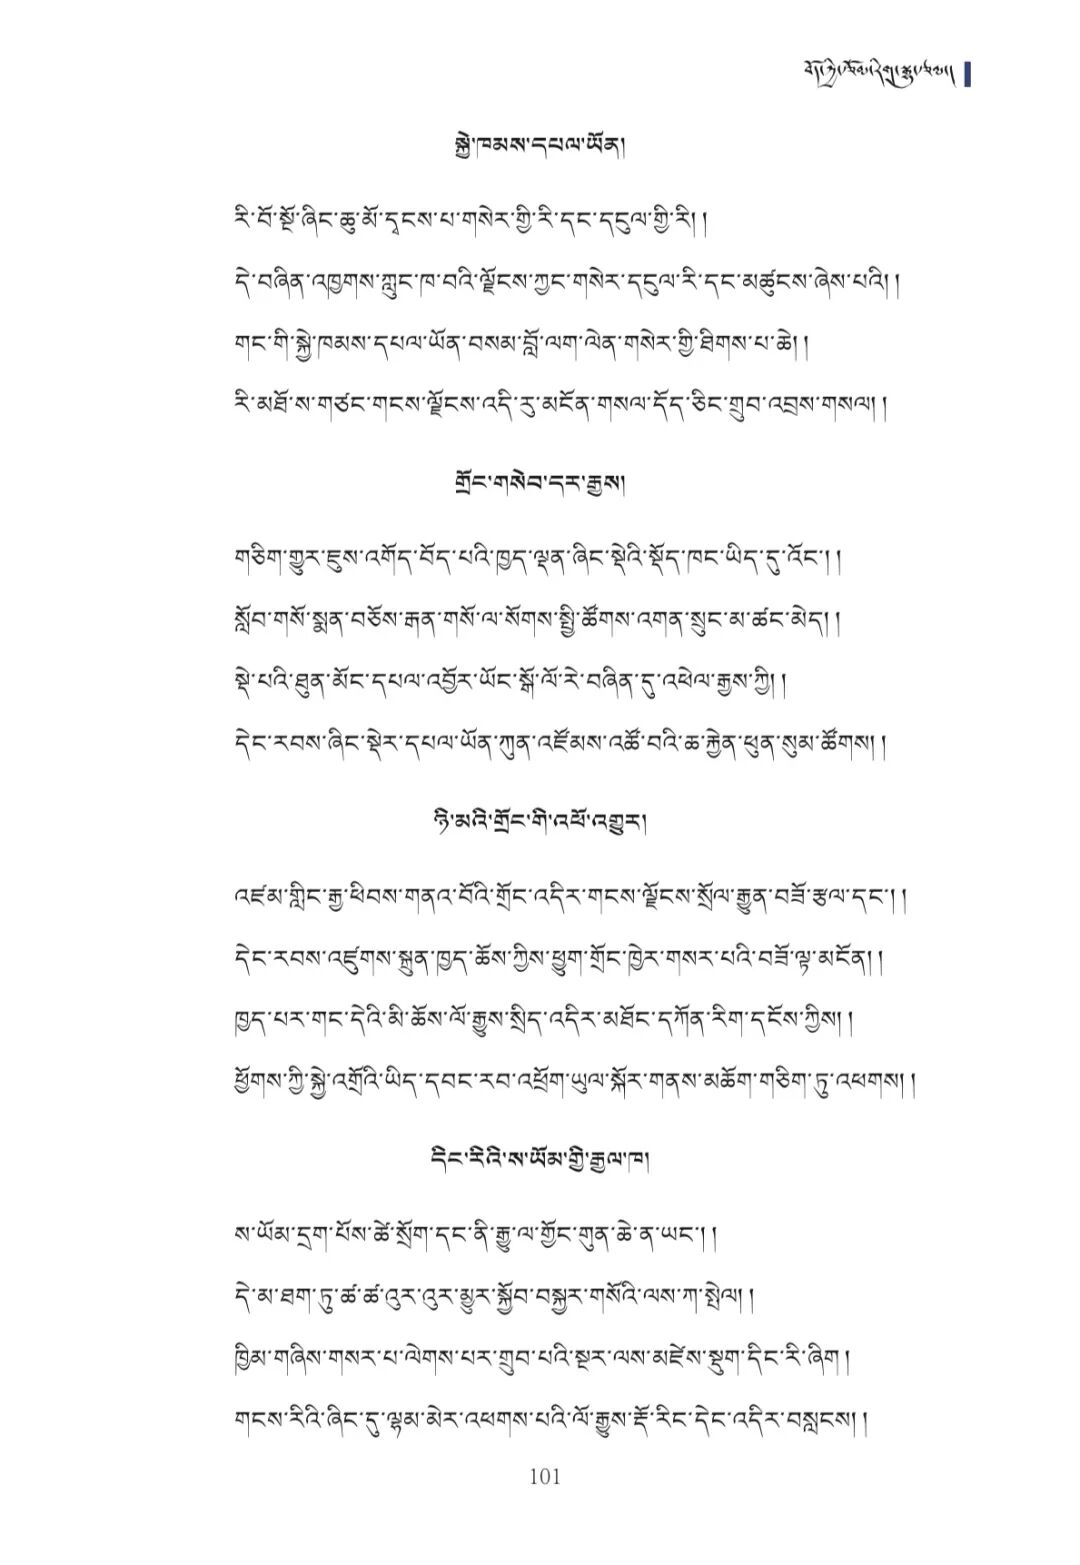 སྐྱེ་ཁམས་དཔལ་ཡོན།
རི་བོ་སྔོ་ཞིང་ཆུ་མོ་དྭངས་པ་གསེར་གྱི་རི་དང་དངུལ་གྱི་རི།།
དེ་བཞིན་འཁྱགས་ཀླུང་ཁ་བའི་ལྗོངས་ཀྱང་གསེར་དངུལ་རི་དང་མཚུངས་ཞེས་པའི།།
གང་གི་སྐྱེ་ཁམས་དཔལ་ཡོན་བསམ་བློ་ལག་ལེན་གསེར་གྱི་ཐིགས་པ་ཆེ།།
རི་མཐོ་ས་གཙང་གངས་ལྗོངས་འདི་རུ་མངོན་གསལ་དོད་ཅིང་གྲུབ་འབྲས་གསལ།།
གྲོང་གསེབ་དར་རྒྱས།
གཅིག་གྱུར་ཇུས་འགོད་བོད་པའི་ཁྱད་ལྡན་ཞིང་སྡེའི་སྡོད་ཁང་ཡིད་དུ་འོང་།།
སློབ་གསོ་སྨན་བཅོས་རྒན་གསོ་ལ་སོགས་སྤྱི་ཚོགས་འགན་སྲུང་མ་ཚང་མེད།།
སྡེ་པའི་ཐུན་མོང་དཔལ་འབྱོར་ཡོང་སྒོ་ལོ་རེ་བཞིན་དུ་འཕེལ་རྒྱས་ཀྱི།།
དེང་རབས་ཞིང་སྡེར་དཔལ་ཡོན་ཀུན་འཛོམས་འཚོ་བའི་ཆ་རྐྱེན་ཕུན་སུམ་ཚོགས།།
ཉེ་མའི་གྲོང་གི་འཕོ་འགྱུར།
འཛམ་གླིང་རྒྱ་ཕིབས་གནའ་བོའི་གྲོང་འདིར་གངས་ལྗོངས་སྲོལ་རྒྱུན་བཟོ་རྩལ་དང་།།
དེང་རབས་འཛུགས་སྐྲུན་ཁྱད་ཆོས་ཀྱིས་ཕྱུག་གྲོང་ཁྱེར་གསར་པའི་བཟོ་ལྟ་མངོན།།
ཁྱད་པར་གང་དེའི་མི་ཆོས་ལོ་རྒྱུས་སྲིད་འདིར་མཐོང་དཀོན་རིག་དངོས་ཀྱིས།།
ཕྱོགས་ཀྱི་སྐྱེ་འགྲོའི་ཡིད་དབང་རབ་འཕྲོག་ཡུལ་སྐོར་གནས་མཆོག་གཅིག་ཏུ་འཕགས།།
དིང་རིའི་ས་ཡོམ་གྱི་རྒྱལ་ཁ།
ས་ཡོམ་དྲག་པོས་ཚེ་སྲོག་དང་ནི་རྒྱུ་ལ་གྱོང་གུན་ཆེ་ན་ཡང་།།
དེ་མ་ཐག་ཏུ་ཚ་ཚ་འུར་འུར་མྱུར་སྐྱོབ་བསྐྱར་གསོའི་ལས་ཀ་སྤེལ།།
ཁྱིམ་གཞིས་གསར་པ་ལེགས་པར་གྲུབ་པའི་སྔར་ལས་མཛེས་སྡུག་དིང་རི་ཞིག།
གངས་རིའི་ཞིང་དུ་ལྷམ་མེར་འཕགས་པའི་ལོ་རྒྱུས་རྡོ་རིང་དེང་འདིར་བསླངས།།
101